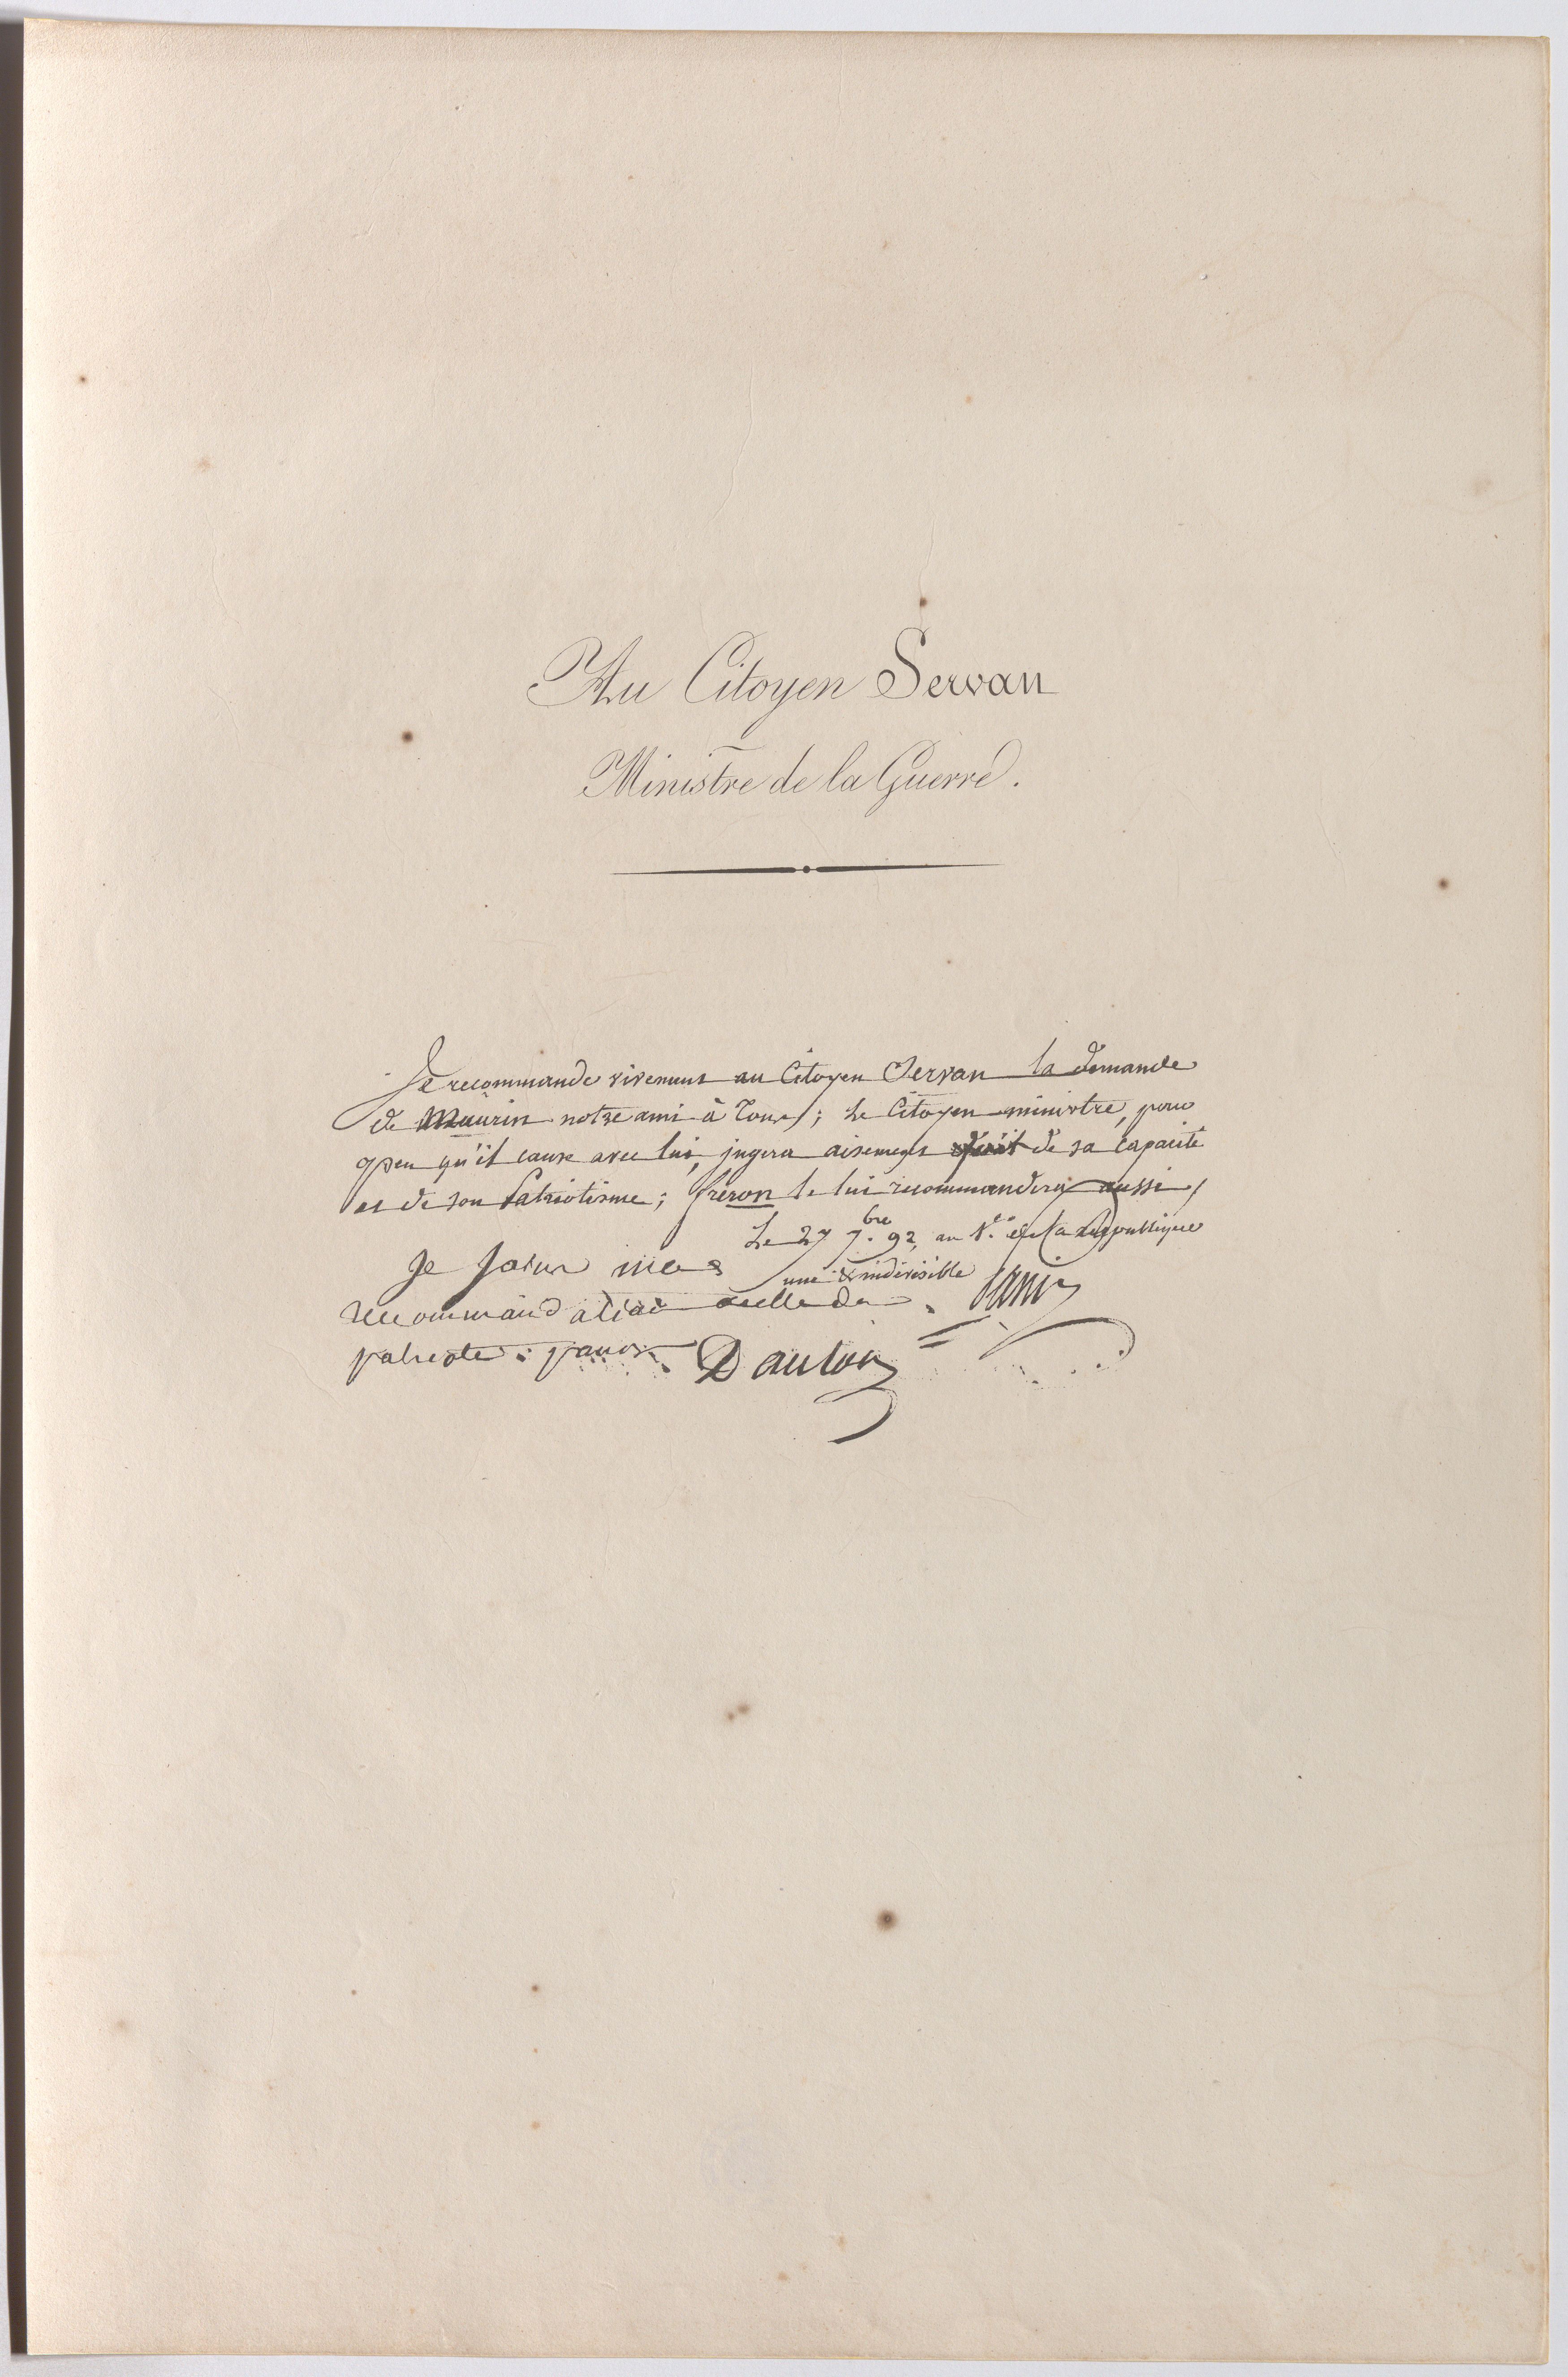 Au Citoyen Servan
Ministre de la Guerre.
Je recommande vivement au Citoyen Servan la demande
de Maurin notre ami à tous; Le Citoyen ministre, pour
peu qu'il cause avec lui, jugera aisement de sa capacité
et de son Patriotisme; fréron le lui recommandera aussi,
Le 27 7.bre 92, an 1.er de la République
une & indivisible
Panis
Je joins mes
recommandation a celle du
patriote panis. Danton